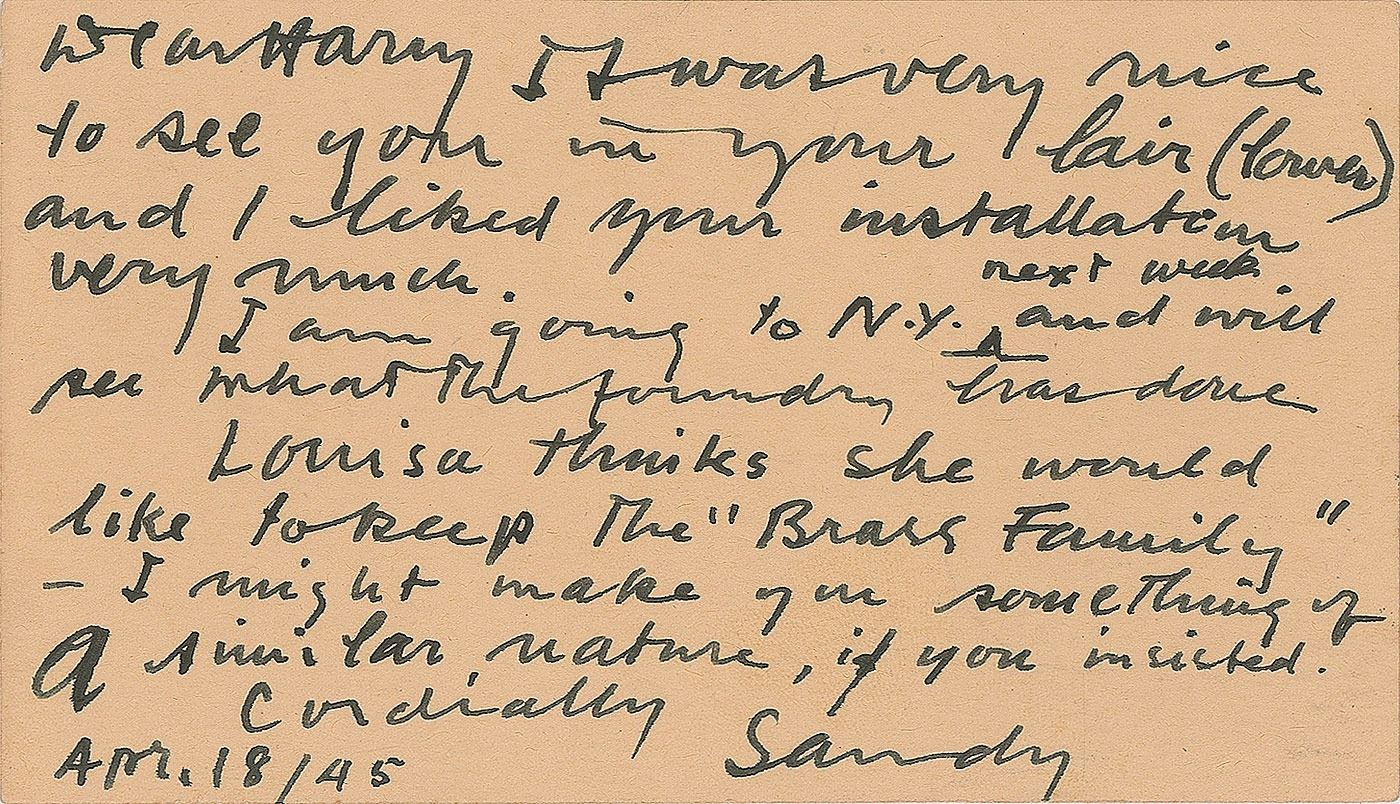 Dear Harry It was very nice
to see you in your lair (tower)
and I liked your installation
very much.
next week
I am going to N.Y. ^ and will
see what the foundry has done
Louisa thinks she would
like to keep the "Brass Family"
– I might make you something of
a similar nature, if you insisted.
Cordially
Sandy
Apr. 18/45